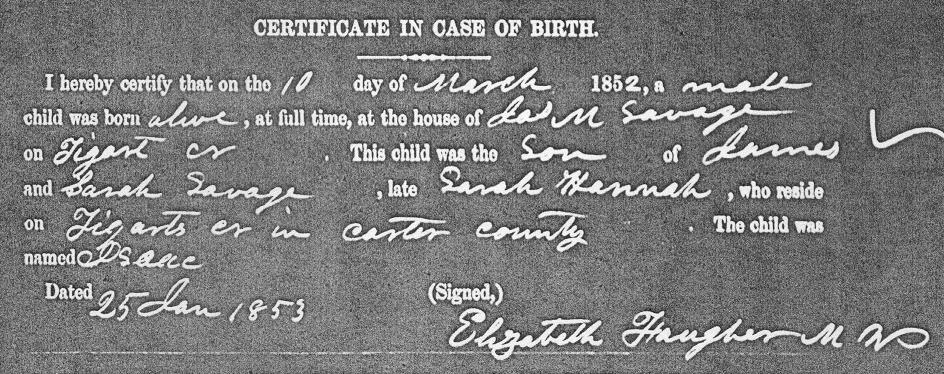 CERTIFICATE IN CASE OF BIRTH.
I hereby certify that on the 10 day of March 1852, a male
child was born alive, at full time, at the house of Jas M Savage
on Tigart cr . This child was the Son of James
and Sarah Savage , late Sarah Hannah , who reside
on Tigarts cr in carter county . The child was
named Isaac
Dated 25 Jan 1853 (Signed,)
Elizabeth Faugher M W